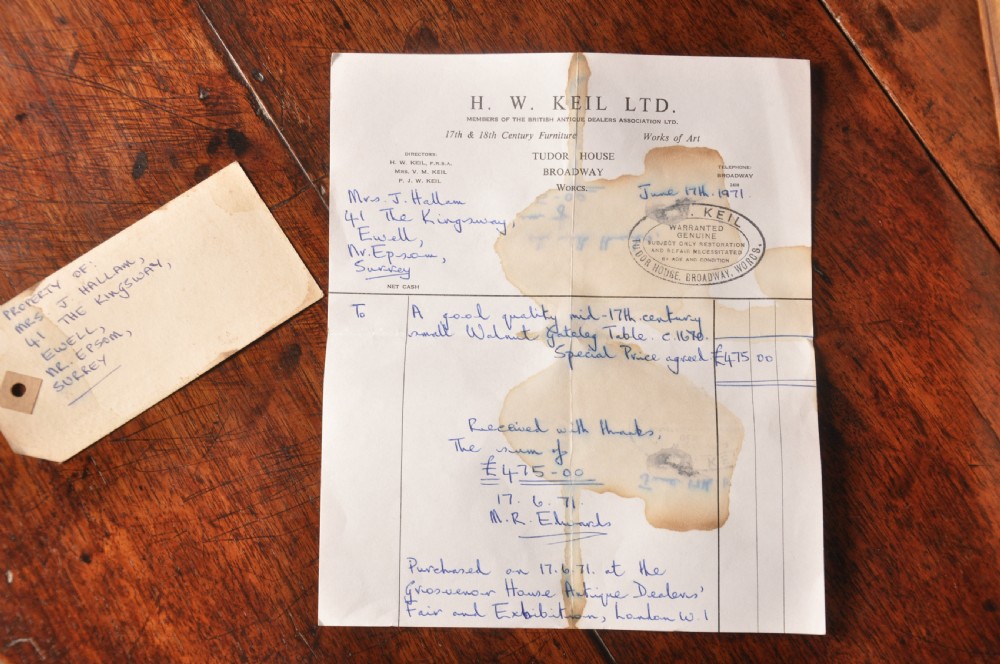 H. W. KEIL LTD.
MEMBERS OF THE BRITISH ANTIQUE DEALERS ASSOCIATION LTD.
17th & 18th Century Furniture
Works of Art
DIRECTORS:
H. W. KEIL, F.R.S.A.
MRS. V. M. KEIL
P. J. W. KEIL
TUDOR HOUSE
BROADWAY
WORCS.
TELEPHONE:
BROADWAY
June 17th. 1971.
Mrs. J. Hallam
41 The Kingsway,
Ewell,
Nr. Epsom,
Surrey
W. KEIL
WARRANTED
GENUINE
SUBJECT ONLY RESTORATION
AND REPAIR NECESSITATED
BY AGE AND CONDITION
TUDOR HOUSE, BROADWAY, WORCS.
NETT CASH
To
A good quality mid-17th. century
small Walnut gateleg Table. c.1670.
Special Price agreed £475 00
Received with thanks,
The sum of
£475-00
17. 6. 71.
M. R. Edwards
Purchased on 17.6.71. at the
Grosvenor House Antique Dealers'
Fair and Exhibition, London W.1
PROPERTY OF:
MRS J. HALLAM,
41 THE KINGSWAY,
EWELL,
NR. EPSOM,
SURREY